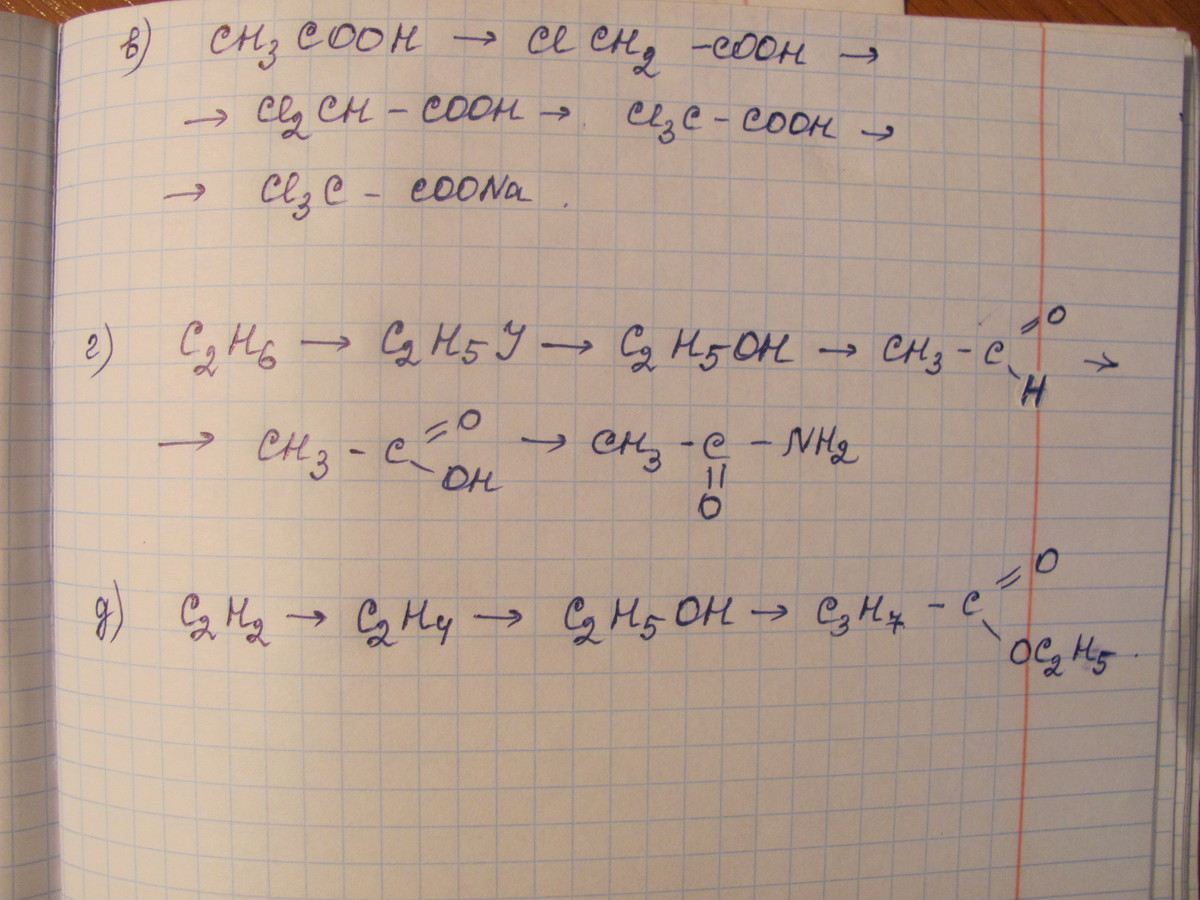 в) CH₃COOH → ClCH₂ –COOH →
→ Cl₂CH – COOH → Cl₃C – COOH →
→ Cl₃C – COONa .
O
г) C₂H₆ → C₂H₅Y → C₂H₅OH → CH₃ – C =  →
H
O
→ CH₃ – C = → CH₃ – C – NH₂
OH ||
O
O
g) C₂H₂ → C₂H₄ → C₂H₅OH → C₃H₇ – C =
OC₂H₅ .